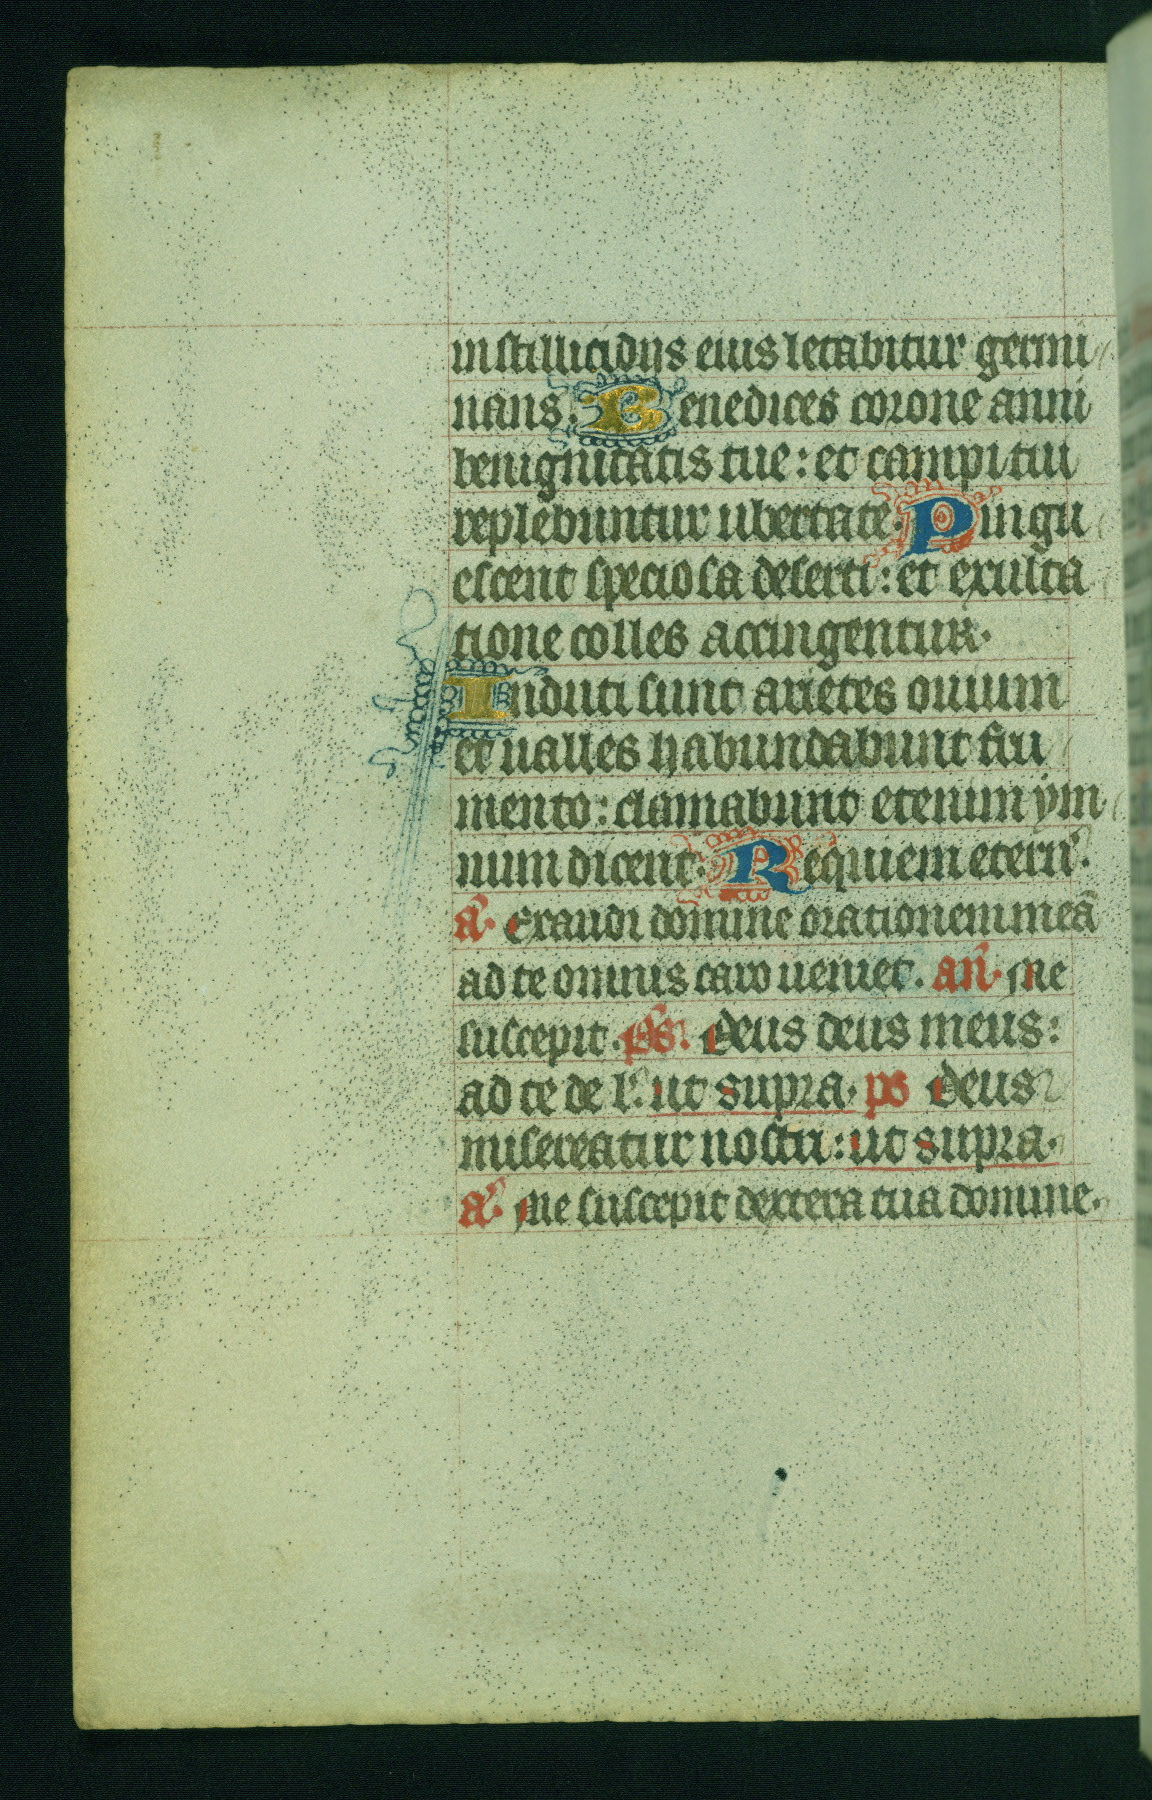 in stillicidijs eius letabitur germi
nans. Benedices corone anni
benignitatis tue: et campi tui
replebuntur ubertate. Pingu
escent speciosa deserti: et exulta
tione colles accingentur.
Induti sunt arietes ouium
et ualles habundabunt fru
mento: clamabunt etenim ym
num dicent. Requiem etern̄.
ā. Exaudi domine orationem meā
ad te omnis caro ueniet. an̄. Me
suscepit. ps̄. Deus deus meus:
ad te de l. ut supra. ps Deus
misereatur nostri: ut supra.
ā. Me suscepit dextera tua domine.